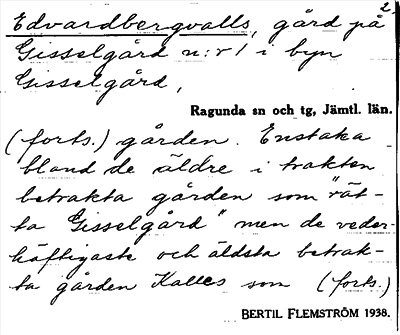 2
Edvardbergvalls, gård på
Gisselgård n:r 1 i byn
Gisselgård,
Ragunda sn och tg, Jämtl. län.
(forts.) gården. Enstaka
bland de äldre i trakten
betrakta gården som "rät-
ta Gisselgård" men de veder-
häftigaste och äldsta betrak-
ta gården Kalles som (forts.)
BERTIL FLEMSTRÖM 1938.